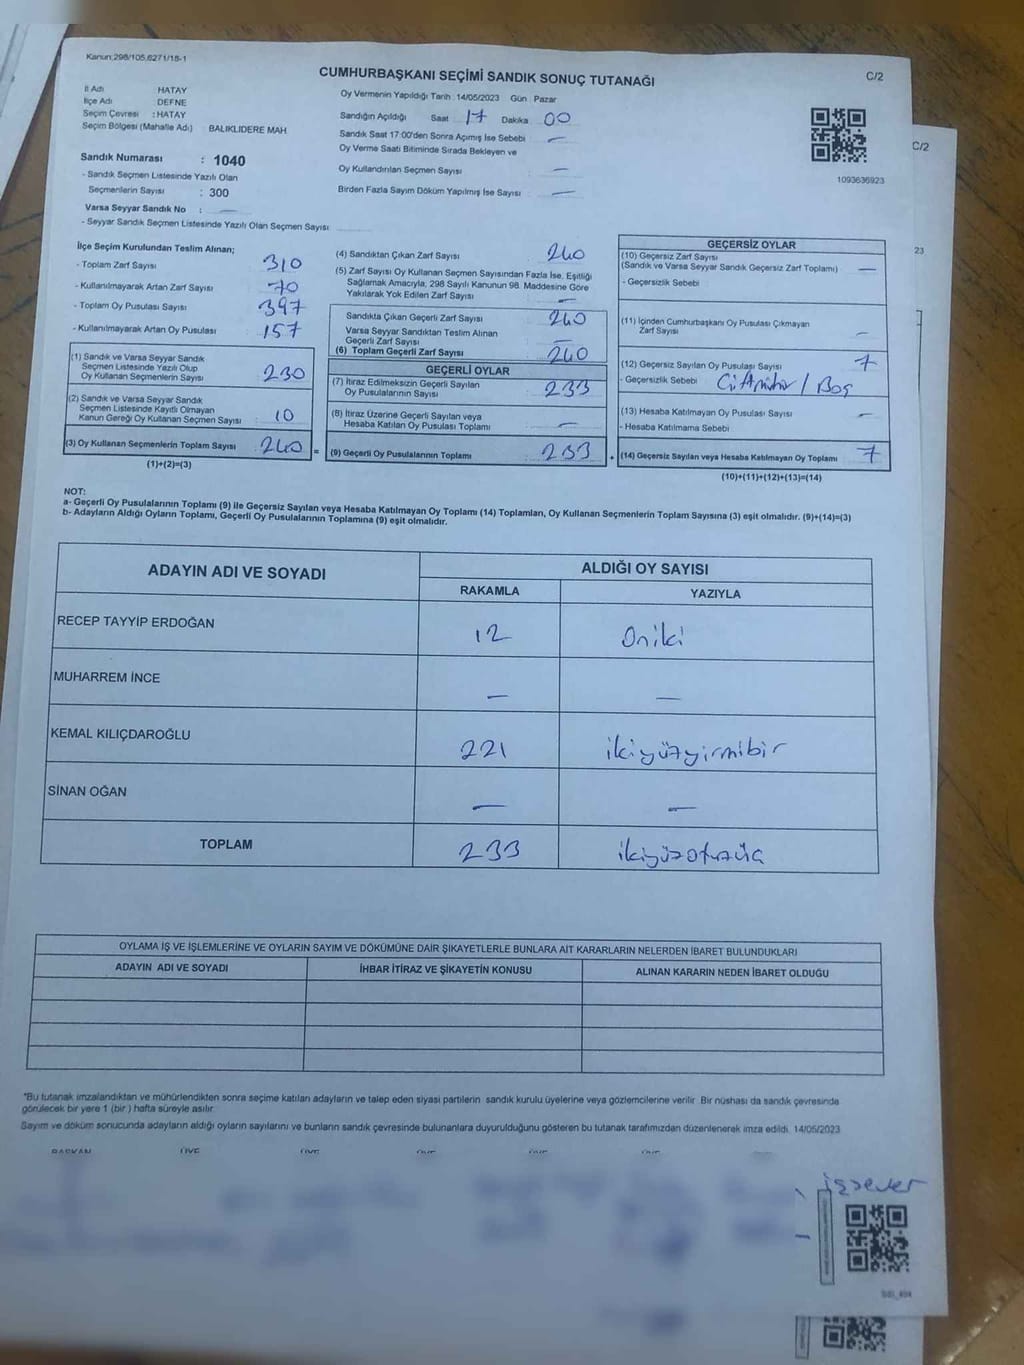 Kanun:298/105,6271/18-1
C/2
CUMHURBAŞKANI SEÇİMİ SANDIK SONUÇ TUTANAĞI
İl Adı HATAY
İlçe Adı DEFNE
Seçim Çevresi : HATAY
Seçim Bölgesi (Mahalle Adı) BALIKLIDERE MAH
Sandık Numarası : 1040
- Sandık Seçmen Listesinde Yazılı Olan
Seçmenlerin Sayısı : 300
Varsa Seyyar Sandık No : —
- Seyyar Sandık Seçmen Listesinde Yazılı Olan Seçmen Sayısı
Oy Vermenin Yapıldığı Tarih :14/05/2023 Gün Pazar
Sandığın Açıldığı Saat 17 Dakika 00
Sandık Saat 17:00'den Sonra Açımış İse Sebebi —
Oy Verme Saati Bitiminde Sırada Bekleyen ve
Oy Kullandırılan Seçmen Sayısı —
Birden Fazla Sayım Döküm Yapılmış İse Sayısı —
1093636923
C/2
23
İlçe Seçim Kurulundan Teslim Alınan;
- Toplam Zarf Sayısı 310
- Kullanılmayarak Artan Zarf Sayısı 70
- Toplam Oy Pusulası Sayısı 397
- Kullanılmayarak Artan Oy Pusulası 157
(1) Sandık ve Varsa Seyyar Sandık
Seçmen Listesinde Yazılı Olup
Oy Kullanan Seçmenlerin Sayısı 230
(2) Sandık ve Varsa Seyyar Sandık
Seçmen Listesinde Kayıtlı Olmayan
Kanun Gereği Oy Kullanan Seçmen Sayısı 10
(3) Oy Kullanan Seçmenlerin Toplam Sayısı 240 =
(1)+(2)=(3)
(4) Sandıktan Çıkan Zarf Sayısı 240
(5) Zarf Sayısı Oy Kullanan Seçmen Sayısından Fazla İse, Eşitliği
Sağlamak Amacıyla, 298 Sayılı Kanunun 98. Maddesine Göre
Yakılarak Yok Edilen Zarf Sayısı —
Sandıkta Çıkan Geçerli Zarf Sayısı 240
Varsa Seyyar Sandıktan Teslim Alınan
Geçerli Zarf Sayısı —
(6) Toplam Geçerli Zarf Sayısı 240
GEÇERLİ OYLAR
(7) İtiraz Edilmeksizin Geçerli Sayılan
Oy Pusulalarının Sayısı 233
(8) İtiraz Üzerine Geçerli Sayılan veya
Hesaba Katılan Oy Pusulası Toplamı —
(9) Geçerli Oy Pusulalarının Toplamı 233 +
GEÇERSİZ OYLAR
(10) Geçersiz Zarf Sayısı
(Sandık ve Varsa Seyyar Sandık Geçersiz Zarf Toplamı) —
- Geçersizlik Sebebi
(11) İçinden Cumhurbaşkanı Oy Pusulası Çıkmayan
Zarf Sayısı —
(12) Geçersiz Sayılan Oy Pusulası Sayısı 7
- Geçersizlik Sebebi / Boş
(13) Hesaba Katılmayan Oy Pusulası Sayısı —
- Hesaba Katılmama Sebebi
(14) Geçersiz Sayılan veya Hesaba Katılmayan Oy Toplamı 7
(10)+(11)+(12)+(13)=(14)
NOT:
a- Geçerli Oy Pusulalarının Toplamı (9) ile Geçersiz Sayılan veya Hesaba Katılmayan Oy Toplamı (14) Toplamları, Oy Kullanan Seçmenlerin Toplam Sayısına (3) eşit olmalıdır. (9)+(14)=(3)
b- Adayların Aldığı Oyların Toplamı, Geçerli Oy Pusulalarının Toplamına (9) eşit olmalıdır.
ADAYIN ADI VE SOYADI
ALDIĞI OY SAYISI
RAKAMLA YAZIYLA
RECEP TAYYİP ERDOĞAN 12 Oniki
MUHARREM İNCE — —
KEMAL KILIÇDAROĞLU 221 ikiyüzyirmibir
SİNAN OĞAN — —
TOPLAM 233 ikiyüzotuzüç
OYLAMA İŞ VE İŞLEMLERİNE VE OYLARIN SAYIM VE DÖKÜMÜNE DAİR ŞİKAYETLERLE BUNLARA AİT KARARLARIN NELERDEN İBARET BULUNDUKLARI
ADAYIN ADI VE SOYADI İHBAR İTİRAZ VE ŞİKAYETİN KONUSU ALINAN KARARIN NEDEN İBARET OLDUĞU
*Bu tutanak imzalandıktan ve mühürlendikten sonra seçime katılan adayların ve talep eden siyasi partilerin sandık kurulu üyelerine veya gözlemcilerine verilir. Bir nüshası da sandık çevresinde
görülecek bir yere 1 (bir ) hafta süreyle asılır.
Sayım ve döküm sonucunda adayların aldığı oyların sayılarını ve bunların sandık çevresinde bulunanlara duyurulduğunu gösteren bu tutanak tarafımızdan düzenlenerek imza edildi. 14/05/2023
BAŞKAN ÜYE ÜYE ÜYE ÜYE ÜYE
işsever